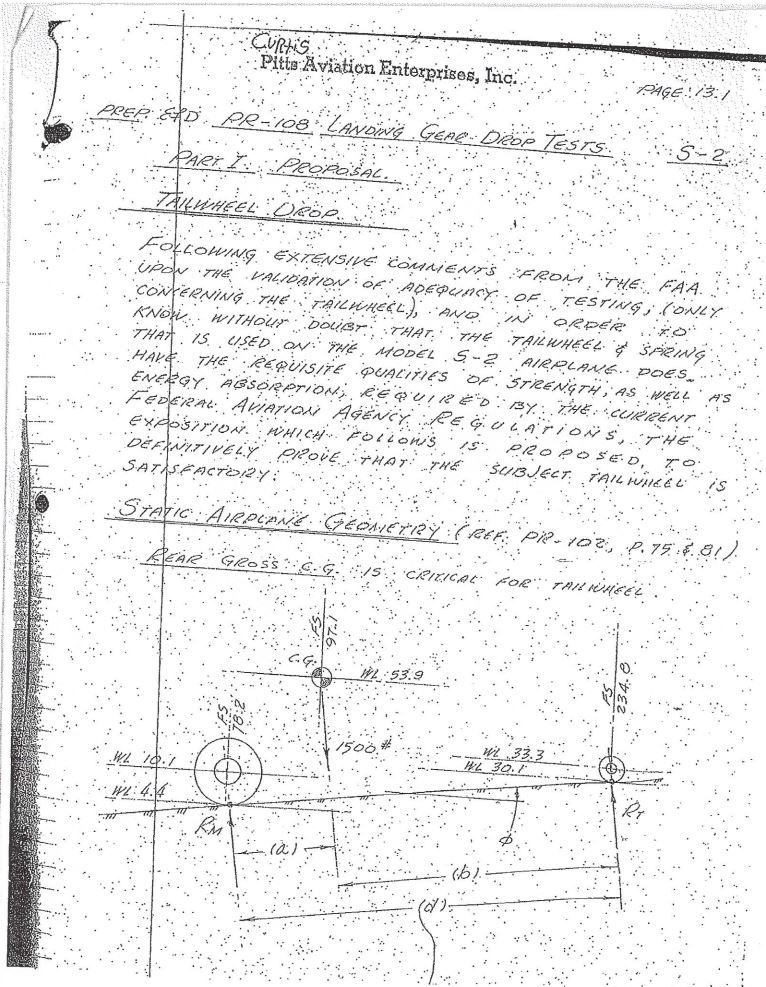 CURTIS
Pitts Aviation Enterprises, Inc.
PAGE 13.1
PREP. E&D PR-108 LANDING GEAR DROP TESTS S-2
PART I. PROPOSAL.
TAILWHEEL DROP.
FOLLOWING EXTENSIVE COMMENTS FROM THE FAA
UPON THE VALIDATION OF ADEQUACY OF TESTING, (ONLY
CONCERNING THE TAILWHEEL), AND IN ORDER TO
KNOW WITHOUT DOUBT THAT THE TAILWHEEL & SPRING
THAT IS USED ON THE MODEL S-2 AIRPLANE DOES
HAVE THE REQUISITE QUALITIES OF STRENGTH, AS WELL AS
ENERGY ABSORPTION, REQUIRED BY THE CURRENT
FEDERAL AVIATION AGENCY REGULATIONS, THE
EXPOSITION WHICH FOLLOWS IS PROPOSED, TO
DEFINITIVELY PROVE THAT THE SUBJECT TAILWHEEL IS
SATISFACTORY:
STATIC AIRPLANE GEOMETRY (REF. PR-102, P. 75 & 81)
REAR GROSS C.G. IS CRITICAL FOR TAILWHEEL.
FS 97.1
C.G.
WL 53.9
FS 234.8
FS 78.2
1500#
WL 33.3
WL 10.1
WL 30.1
WL 4.4
RM
RT
φ
(a)
(b)
(d)